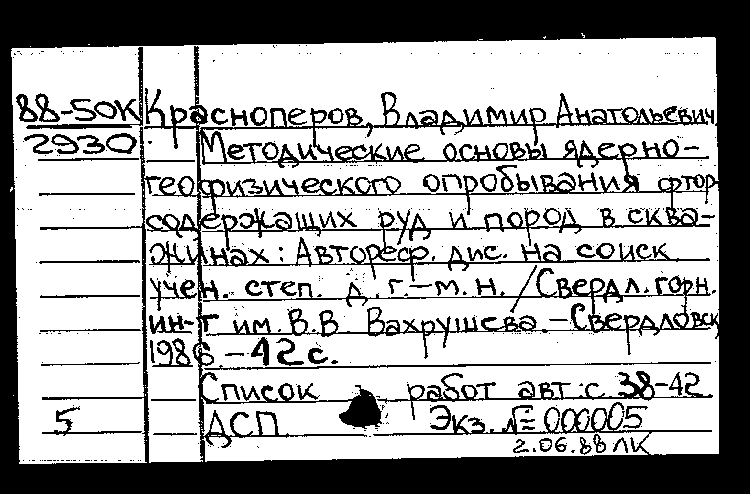 88-50К Красноперов, Владимир Анатольевич
2930 Методические основы ядерно-
геофизического опробывания фтор-
содержащих руд и пород в сква-
жинах: Автореф. дис. на соиск.
учен. степ. д. г.-м. н. / Свердл. горн.
ин-т им. В.В. Вахрушева. - Свердловск
1986 - 42 с.
Список работ авт.: с. 38-42.
5 ДСП Экз. № 000005
2.06.88 ЛК